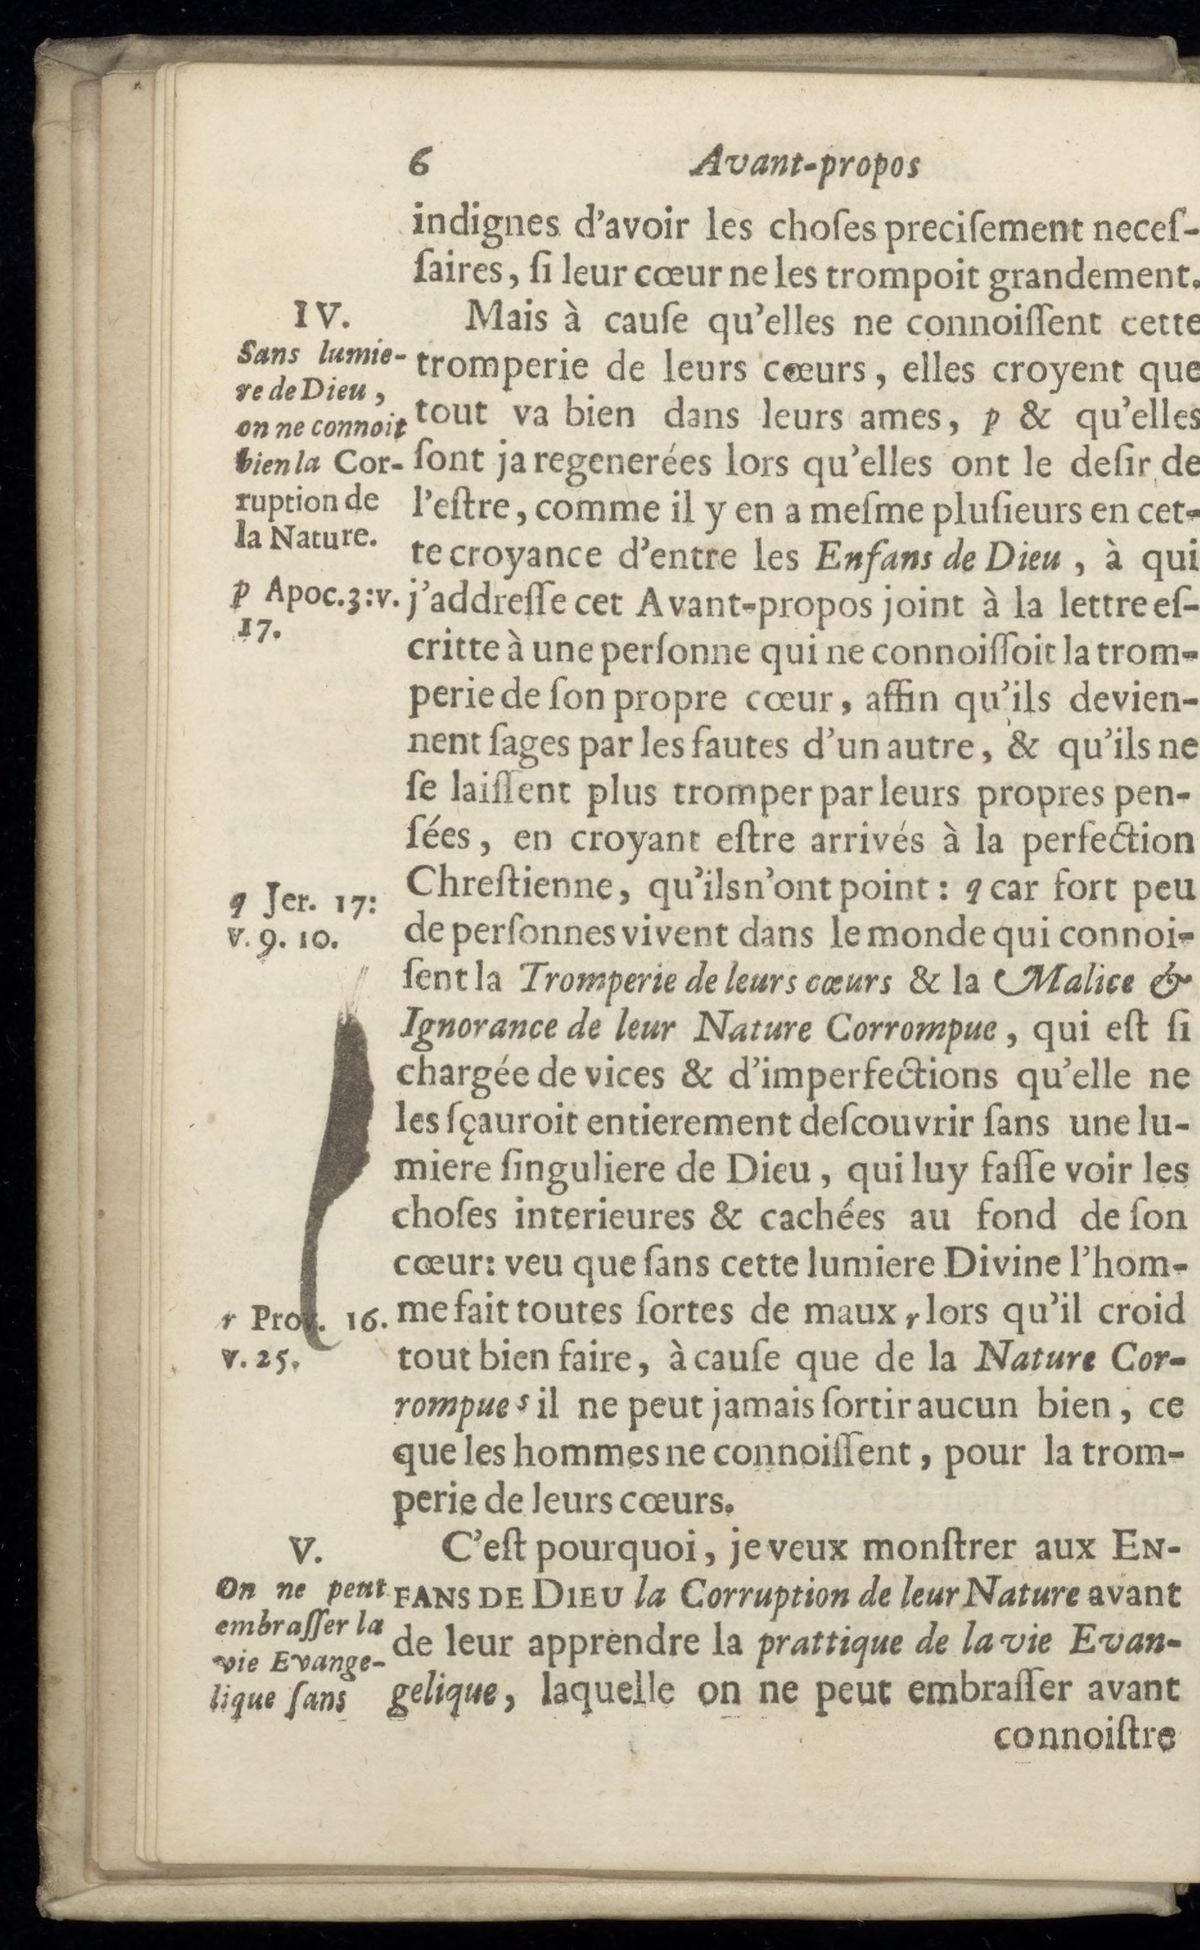 6 Avant-propos
indignes d'avoir les choſes preciſement neceſ-
ſaires, ſi leur cœur ne les trompoit grandement.
IV.
Mais à cauſe qu'elles ne connoiſſent cette
Sans lumie-
tromperie de leurs cœurs, elles croyent que
re de Dieu,
tout va bien dans leurs ames, p & qu'elles
on ne connoit
ſont ja regenerées lors qu'elles ont le deſir de
bien la Cor-
ruption de
l'eſtre, comme il y en a meſme pluſieurs en cet-
la Nature.
te croyance d'entre les Enfans de Dieu, à qui
p Apoc.3:v.
j'addreſſe cet Avant-propos joint à la lettre eſ-
17.
critte à une perſonne qui ne connoiſſoit la trom-
perie de ſon propre cœur, affin qu'ils devien-
nent ſages par les fautes d'un autre, & qu'ils ne
ſe laiſſent plus tromper par leurs propres pen-
ſées, en croyant eſtre arrivés à la perfection
Chreſtienne, qu'ilsn'ont point: q car fort peu
q Jer. 17:
v. 9. 10.
de perſonnes vivent dans le monde qui connoi-
ſent la Tromperie de leurs cœurs & la Malice &
Ignorance de leur Nature Corrompue, qui eſt ſi
chargée de vices & d'imperfections qu'elle ne
les ſçauroit entierement deſcouvrir ſans une lu-
miere ſinguliere de Dieu, qui luy faſſe voir les
choſes interieures & cachées au fond de ſon
cœur: veu que ſans cette lumiere Divine l'hom-
r Prov. 16.
me fait toutes ſortes de maux r lors qu'il croid
v. 25.
tout bien faire, à cauſe que de la Nature Cor-
rompue s il ne peut jamais ſortir aucun bien, ce
que les hommes ne connoiſſent, pour la trom-
perie de leurs cœurs.
V.
C'eſt pourquoi, je veux monſtrer aux EN-
On ne peut
FANS DE DIEU la Corruption de leur Nature avant
embraſſer la
de leur apprendre la prattique de la vie Evan-
vie Evange-
lique ſans
gelique, laquelle on ne peut embraſſer avant
connoiſtre